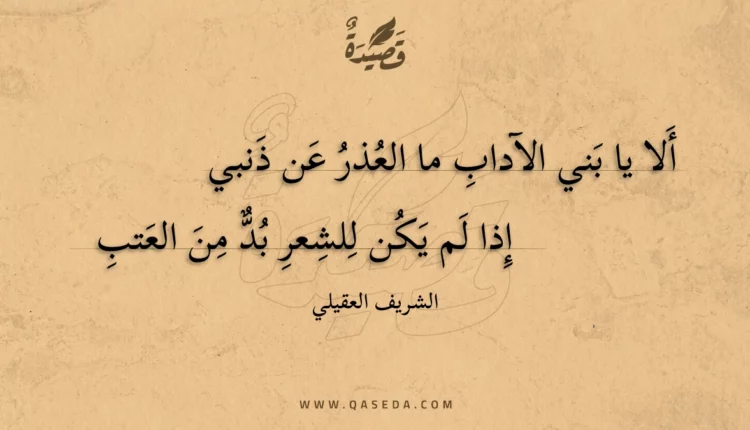 قَصِيدَةٌ
أَلا يا بَني الآدابِ ما العُذرُ عَن ذَنبي
إِذا لَم يَكُن لِلشِعرِ بُدٌّ مِنَ العَتبِ
الشريف العقيلي
WWW.QASEDA.COM